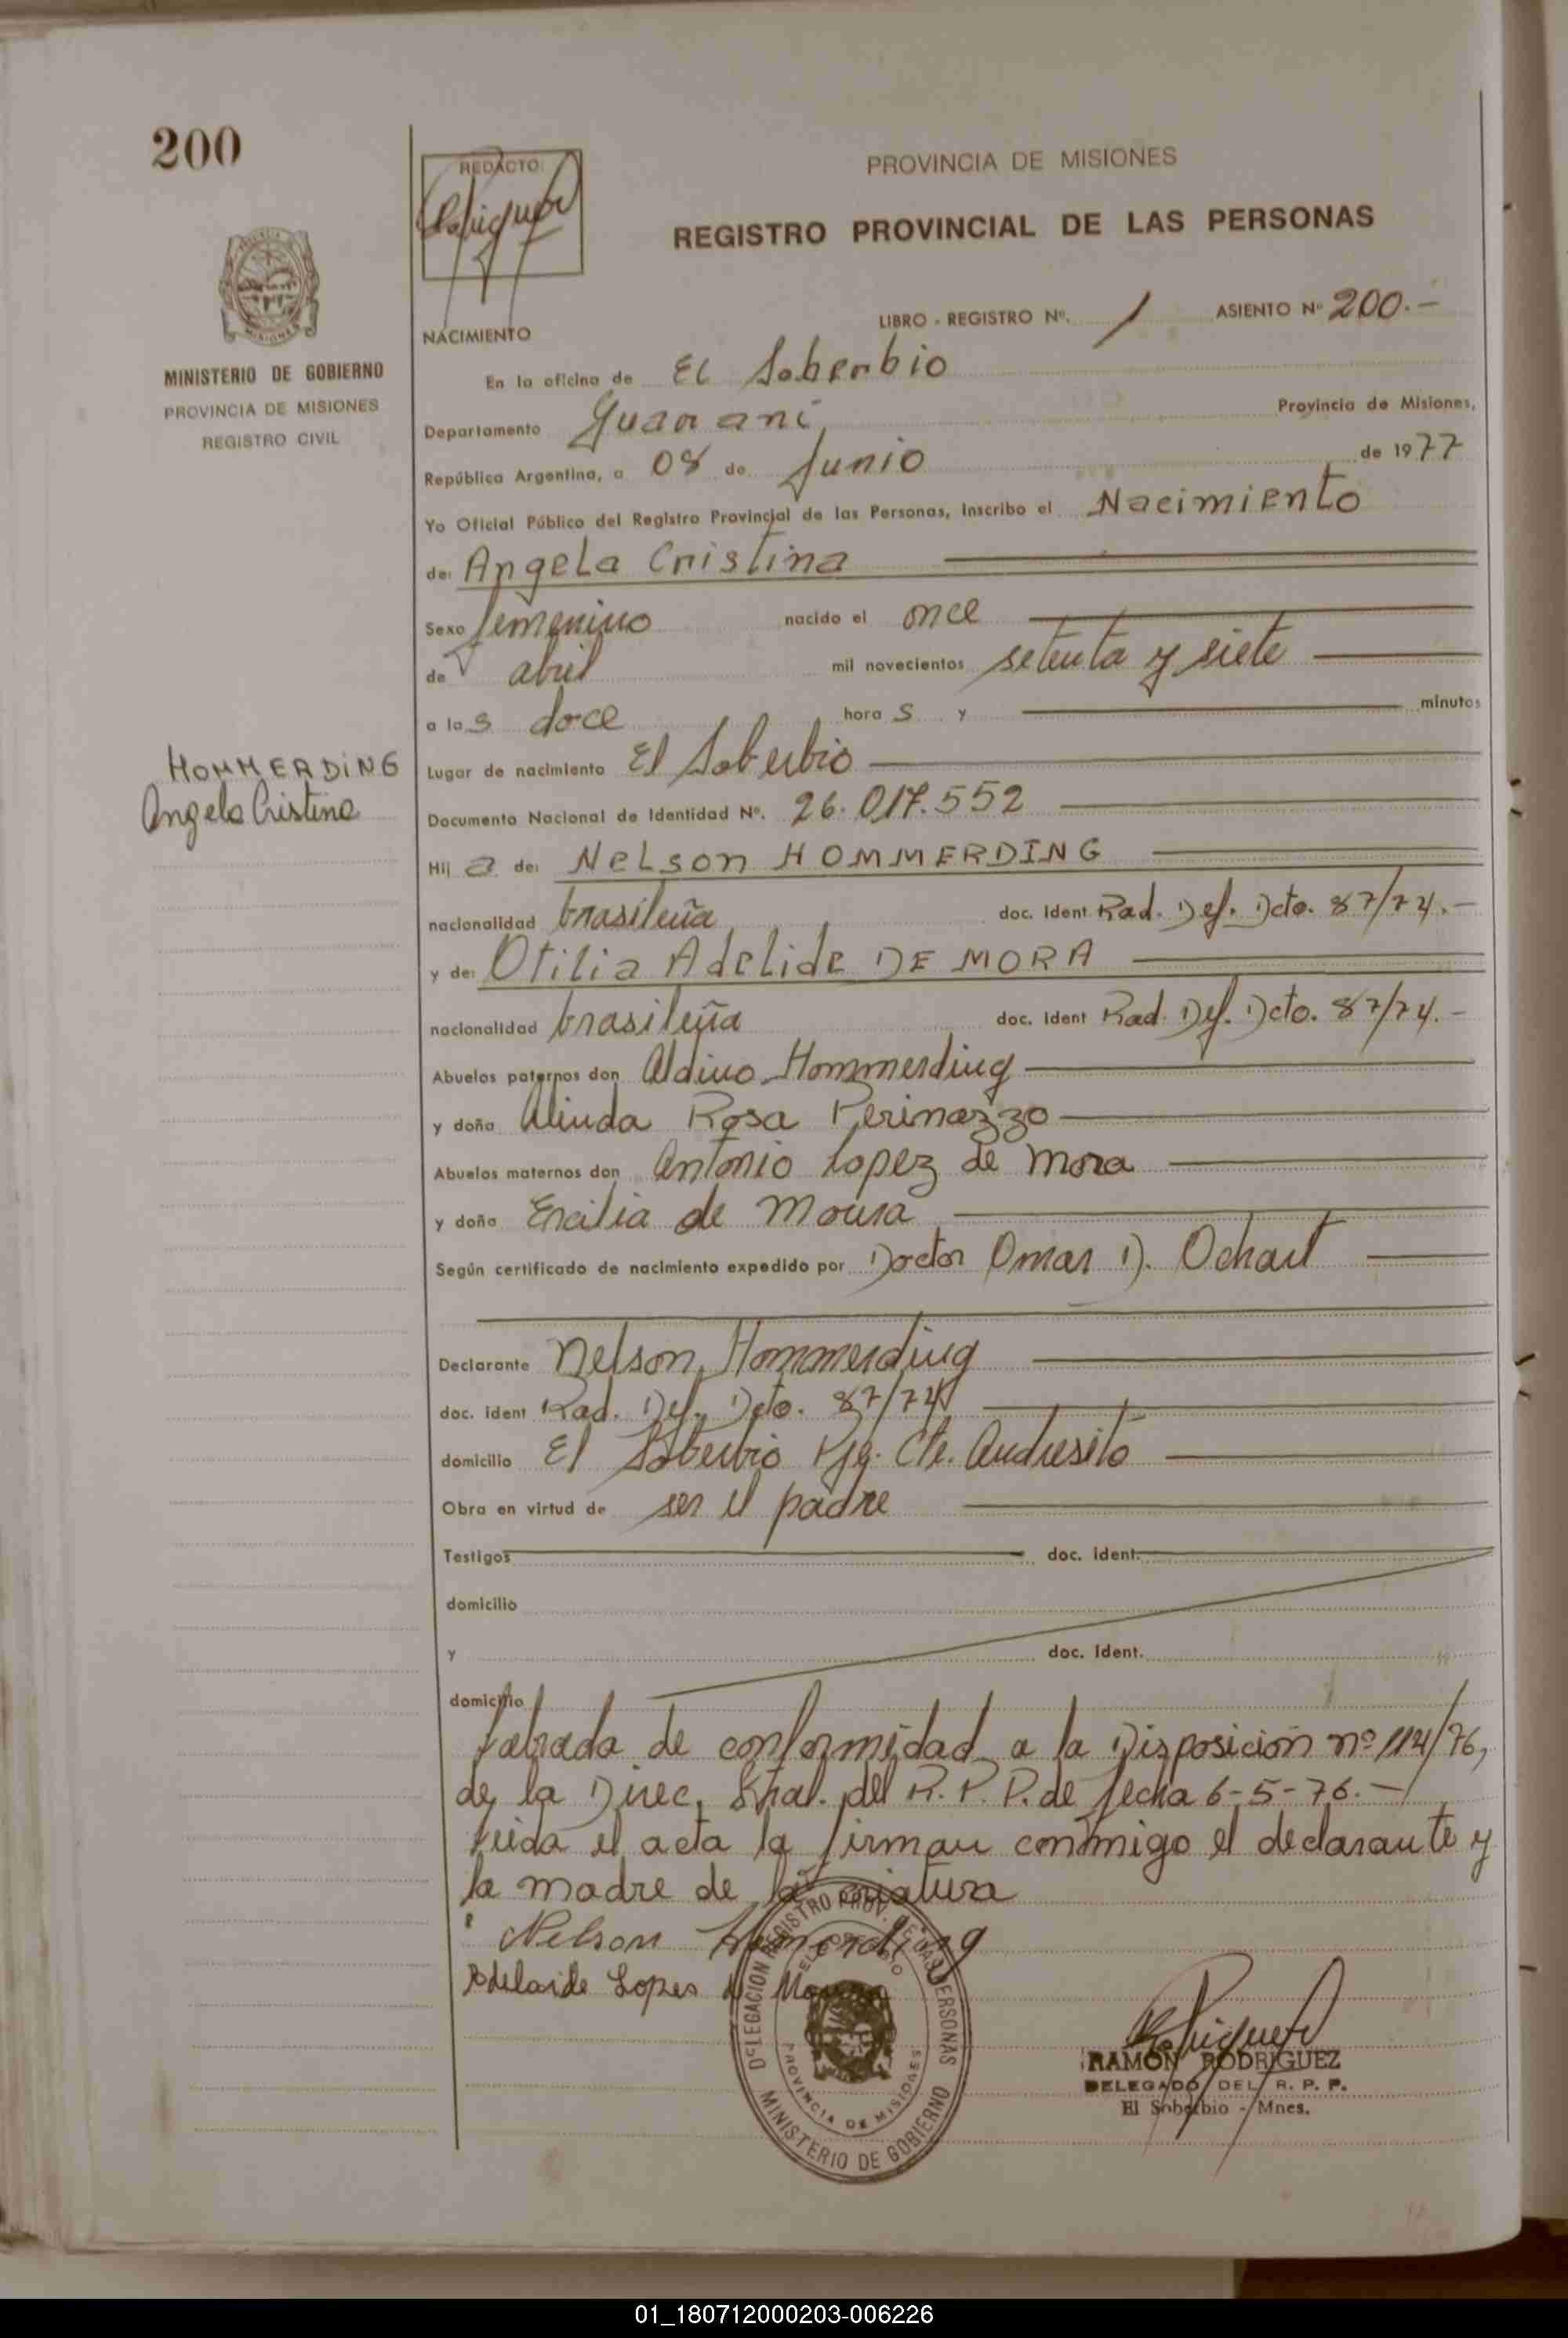 200
REDACTO:
PROVINCIA DE MISIONES
REGISTRO PROVINCIAL DE LAS PERSONAS
MINISTERIO DE GOBIERNO
PROVINCIA DE MISIONES
REGISTRO CIVIL
NACIMIENTO
LIBRO - REGISTRO Nº. 1 ASIENTO Nº 200.-
En la oficina de El Soberbio
Departamento Guarani Provincia de Misiones,
República Argentina, a 08 de Junio de 1977
Yo Oficial Público del Registro Provincial de las Personas, Inscribo el Nacimiento
de: Angela Cristina
Sexo femenino nacido el once
de abril mil novecientos setenta y siete
a las doce horas y minutos
HOMMERDING
Angela Cristina
Lugar de nacimiento El Soberbio
Documento Nacional de Identidad Nº. 26.017.552
Hija de: Nelson HOMMERDING
nacionalidad brasileña doc. Ident Rad. Def. Dcto. 87/74.-
y de: Otilia Adelide DE MORA
nacionalidad brasileña doc. Ident Rad. Def. Dcto. 87/74.-
Abuelos paternos don Aldino Hommerding
y doña Alinda Rosa Perinazzo
Abuelos maternos don Antonio Lopez de Mora
y doña Ercilia de Moura
Según certificado de nacimiento expedido por Doctor Omar D. Ochart
Declarante Nelson Hommerding
doc. ident Rad. Def. Dcto. 87/74
domicilio El Soberbio Pje. Cte. Andresito
Obra en virtud de ser el padre
Testigos doc. ident.
domicilio
y doc. Ident.
domicilio
Labrada de conformidad a la Disposición nº 114/76,
de la Direc. Gral. del R. P. P. de fecha 6-5-76.-
Leida el acta la firman conmigo el declarante y
la madre de la criatura
Nelson Homerding
Adelaide Lopes de
DELEGACION REGISTRO PROV. DE LAS PERSONAS
EL SOBERBIO
PROVINCIA DE MISIONES
MINISTERIO DE GOBIERNO
RAMON RODRIGUEZ
DELEGADO DEL R. P. P.
El Soberbio - Mnes.
01_180712000203-006226